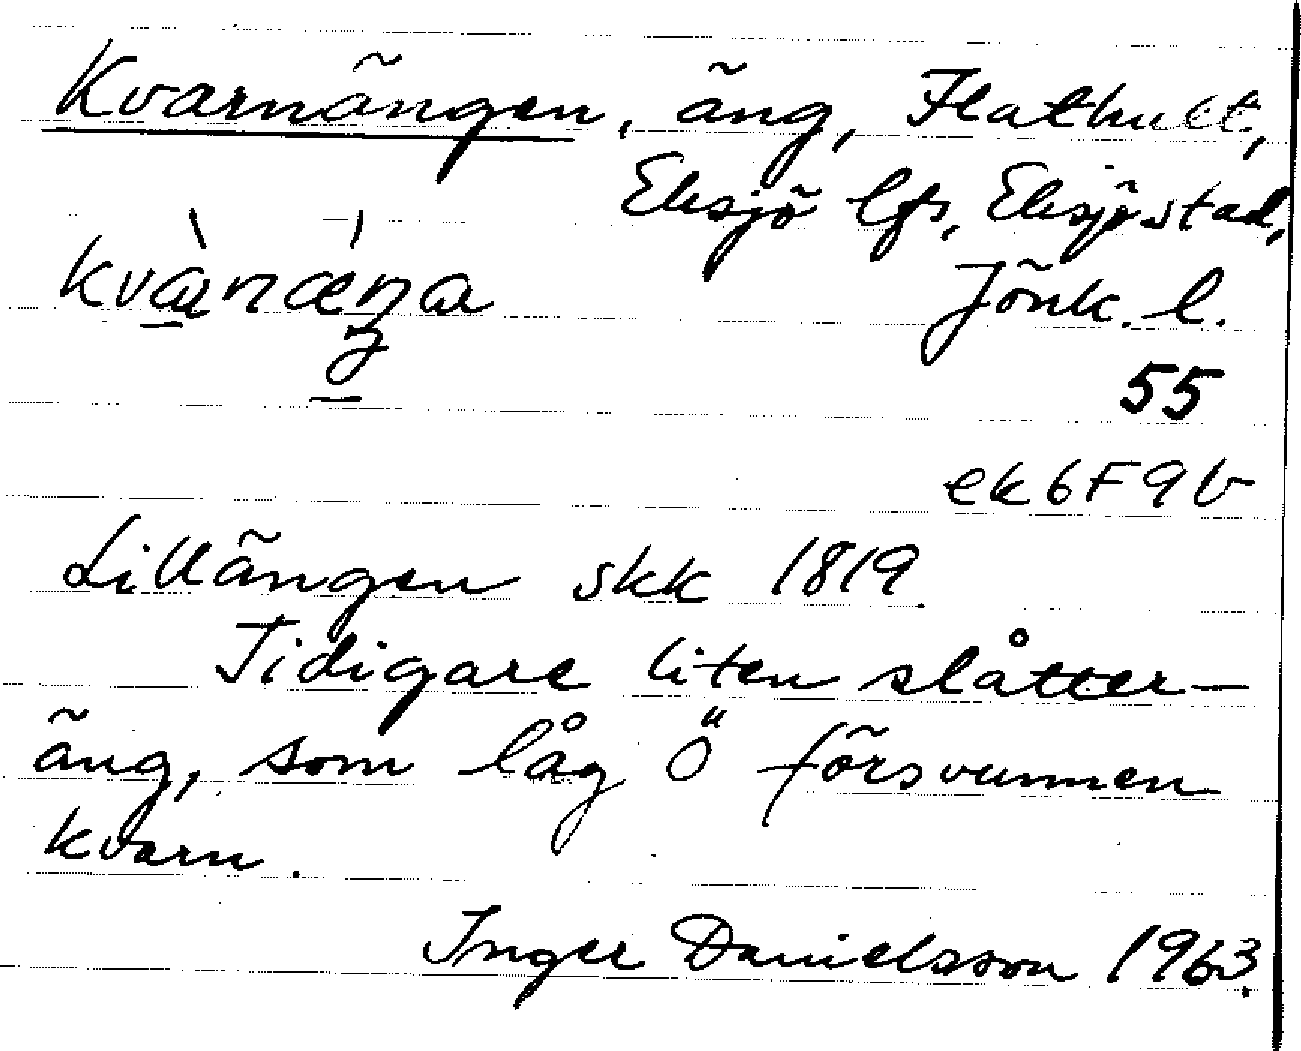 Kvarnängen, äng, Flathult,
Eksjö lfs, Eksjö stad,
Jönk. l.
55
ek 6F9b
Lillängen skk 1819.
Tidigare liten slåtter-
äng, som låg Ö försvunnen
kvarn.
Inger Danielsson 1963.